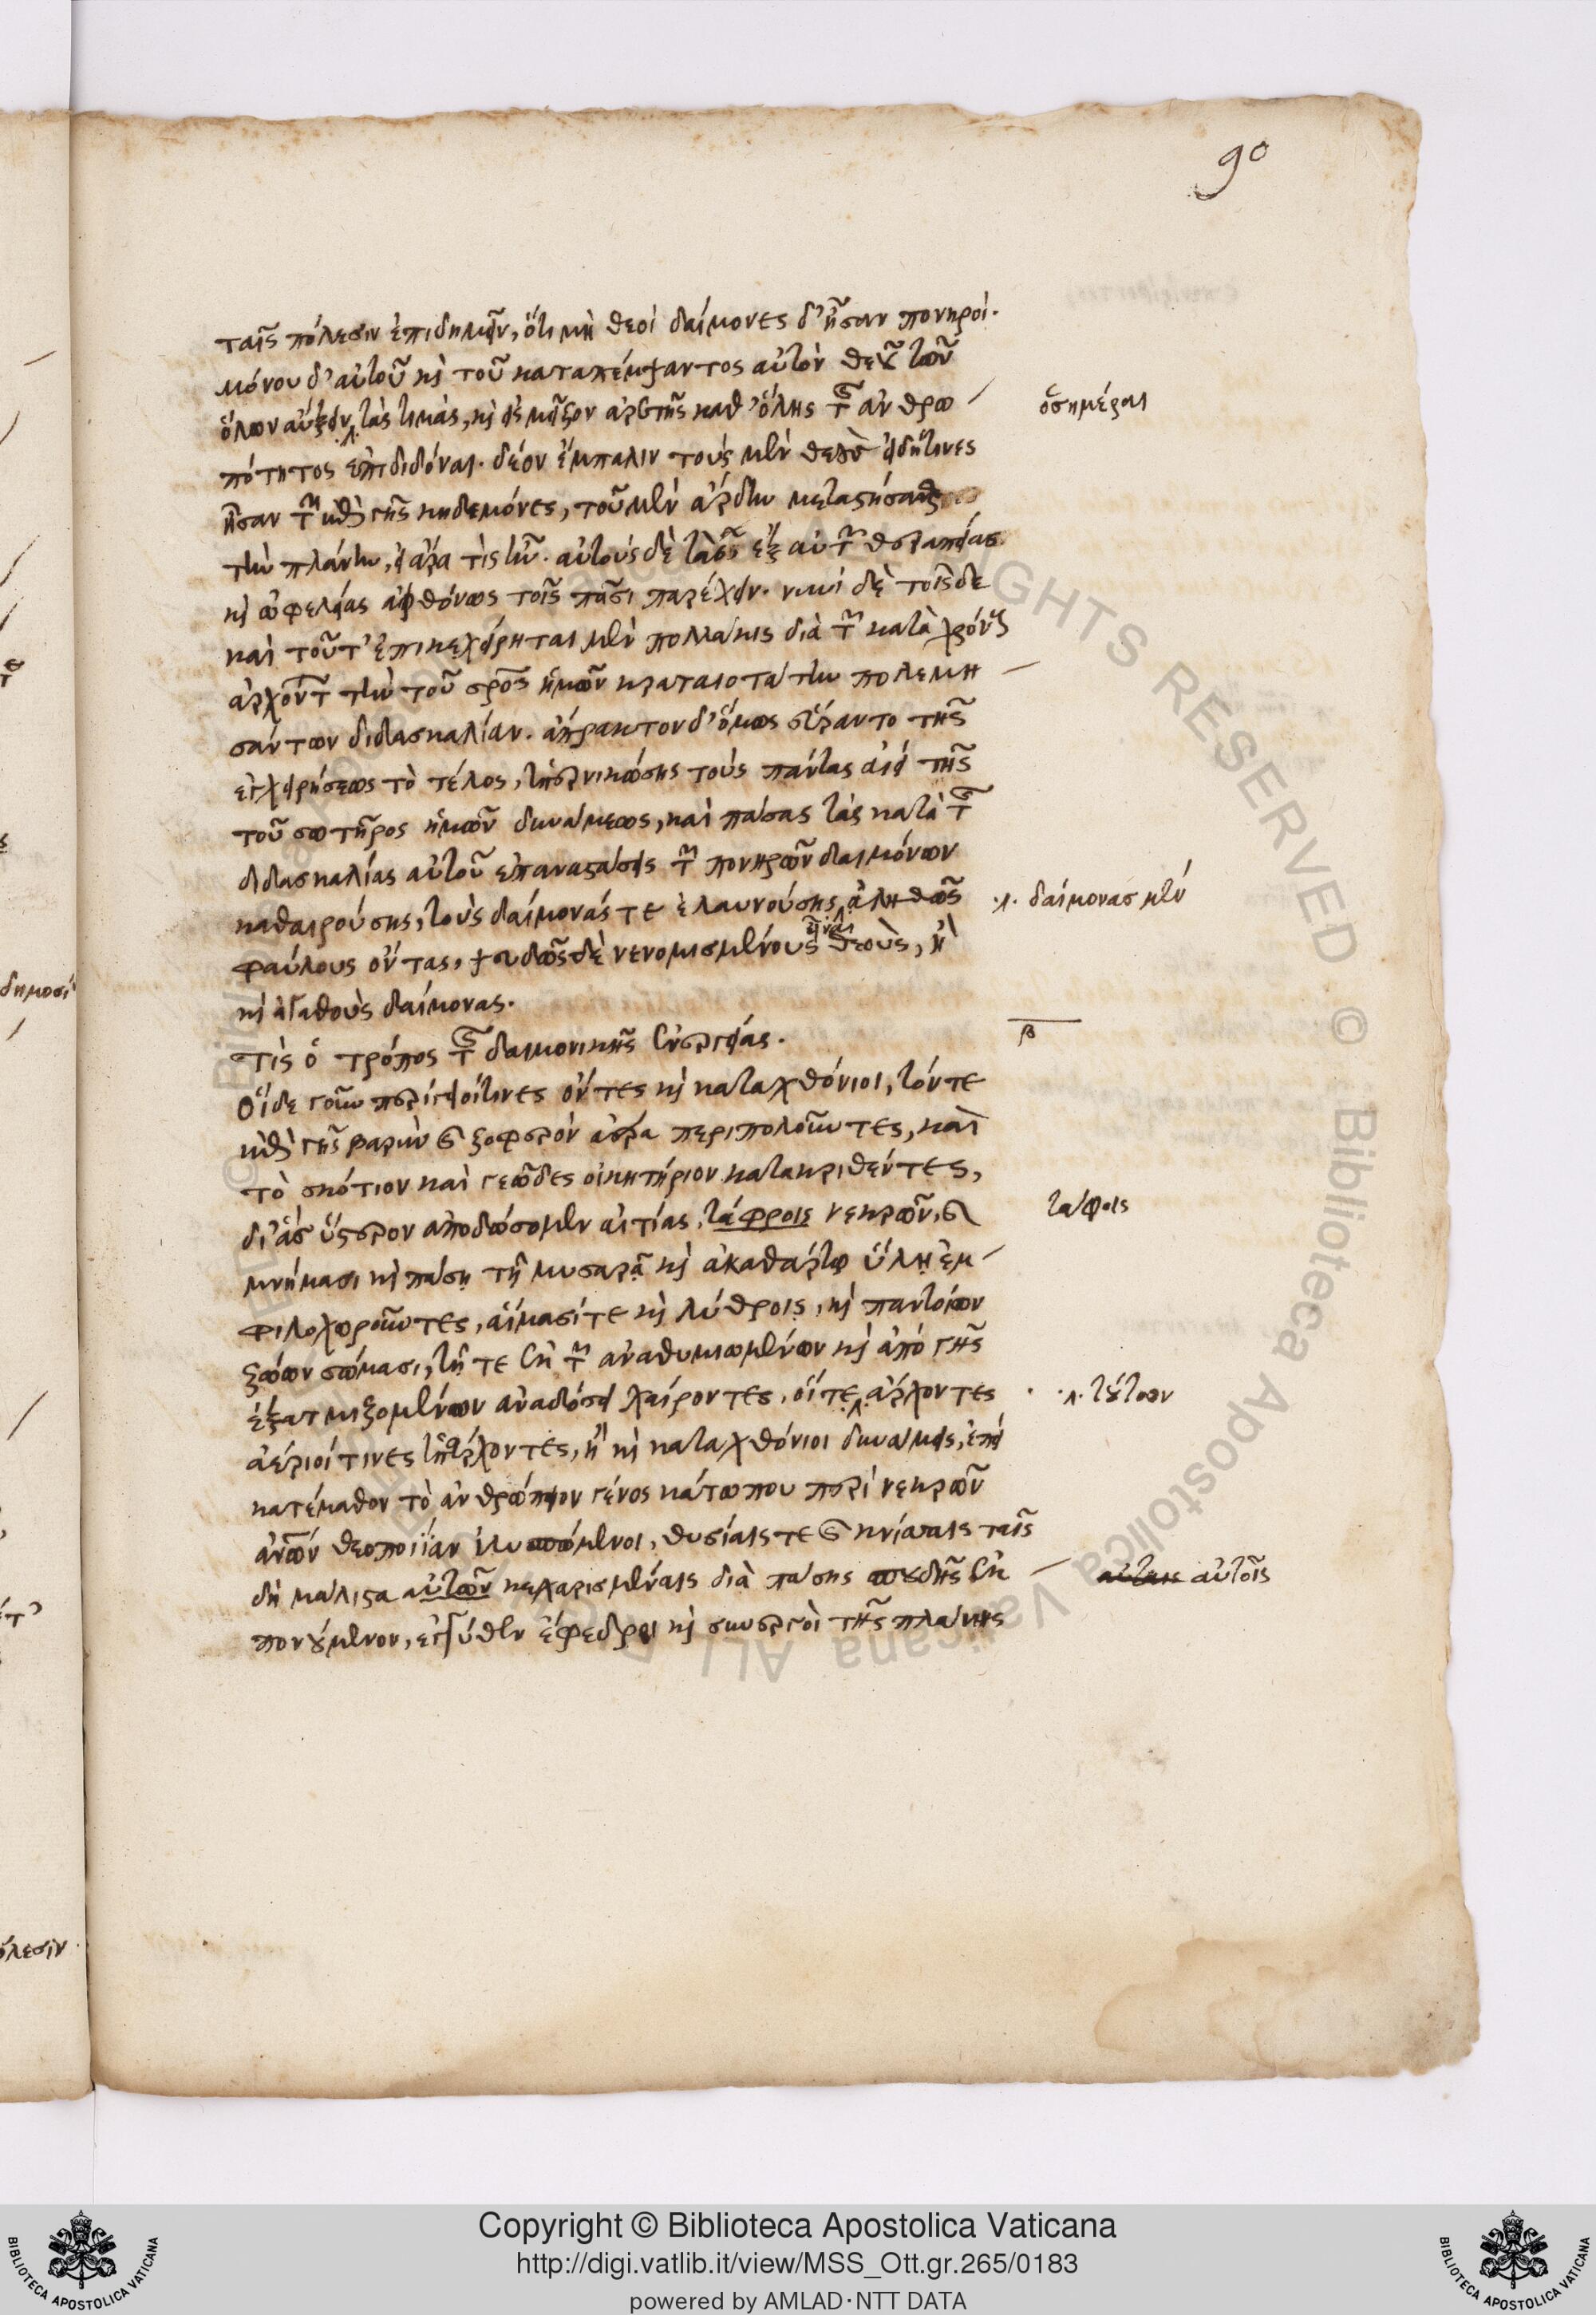 90
ταῖς πόλεσιν ἐπιδημεῖν, ὅτι μὴ θεοὶ δαίμονες δ' ἦσαν πονηροί.
μόνου δ' αὐτοῦ καὶ τοῦ καταπέμψαντος αὐτὸν θεοῦ τῶν
ὅλων αὔξειν τὰς τιμὰς, καὶ εἰς μεῖζον ἀρετῆς καθ' ὅλης τῆς ἀνθρω
ὁσημέραι
πότητος ἐπιδιδόναι. δέον ἔμπαλιν τοὺς μὲν θεοὺς εἰ δή τινες
ἦσαν τῶν ἐπὶ γῆς κηδεμόνες, τοῦ μὲν ἄρδην μεταστήσασθαι
τὴν πλάνην, εἰ ἄρα τὶς ἦν. αὐτοὺς δὲ τὰς ἐξ αὐτῶν θεραπείας
καὶ ὠφελείας ἀφθόνως τοῖς πᾶσι παρέχειν. νυνὶ δὲ τοῖσδε
καὶ τοῦτ' ἐπικεχείρηται μὲν πολλάκις διὰ τῶν κατὰ χρόνους
ἀρχόντων τὴν τοῦ σωτῆρος ἡμῶν κραταιοτάτην πολεμη
σάντων διδασκαλίαν. ἄπρακτον δ' ὅμως εὕραντο τῆς
ἐγχειρήσεως τὸ τέλος, ὑπερνικώσης τοὺς πάντας ἀεὶ τῆς
τοῦ σωτῆρος ἡμῶν δυνάμεως, καὶ πάσας τὰς κατὰ τῆς
διδασκαλίας αὐτοῦ ἐπαναστάσεις τῶν πονηρῶν δαιμόνων
καθαιρούσης, τοὺς δαίμονάς τε ἐλαυνούσης ἀληθῶς
.λ. δαίμονας μὲν
φαύλους ὄντας, ψευδῶς δὲ νενομισμένους εἶναι θεοὺς, ἢ
καὶ ἀγαθοὺς δαίμονας.
Τίς ὁ τρόπος τῆς δαιμονικῆς ἐνεργείας.
β
Οἵδε γοῦν περίγειοί τινες ὄντες καὶ καταχθόνιοι, τόν τε
ἐπὶ γῆς βαρὺν καὶ ζοφερὸν ἀέρα περιπολοῦντες, καὶ
τὸ σκότιον καὶ γεῶδες οἰκητήριον κατακριθέντες,
δι' ἃς ὕστερον ἀποδώσομεν αἰτίας, τάφροις νεκρῶν, καὶ
τάφοις
μνήμασι καὶ πάσῃ τῇ μυσαρᾷ καὶ ἀκαθάρτῳ ὕλῃ ἐμ
φιλοχωροῦντες, αἵμασί τε καὶ λύθροις, καὶ παντοίων
ζώων σώμασι, τῇ τε ἐκ τῶν ἀναθυμιωμένων καὶ ἀπὸ γῆς
ἐξατμιζομένων ἀναδόσει χαίροντες, οἵ τε ἄρχοντες
.λ. τούτων
ἀέριοί τινες ὑπάρχοντες, ἢ καὶ καταχθόνιοι δυνάμεις, ἐπεὶ
κατέμαθον τὸ ἀνθρώπειον γένος κάτω που περὶ νεκρῶν
ἀνδρῶν θεοποιΐαν ἰλυσπώμενοι, θυσίαις τε καὶ κνίσσαις ταῖς
δὴ μάλιστα αὐτῶν κεχαρισμέναις διὰ πάσης σπουδῆς ἐκ
αὐταις αὐτοῖς
πονούμενον, ἐγγύθεν ἔφεδροι καὶ συνεργοὶ τῆς πλάνης
δημοσί
όλεσιν
ALL RIGHTS RESERVED © Biblioteca Apostolica Vaticana
Copyright © Biblioteca Apostolica Vaticana
http://digi.vatlib.it/view/MSS_Ott.gr.265/0183
powered by AMLAD·NTT DATA
BIBLIOTECA APOSTOLICA VATICANA
BIBLIOTECA APOSTOLICA VATICANA